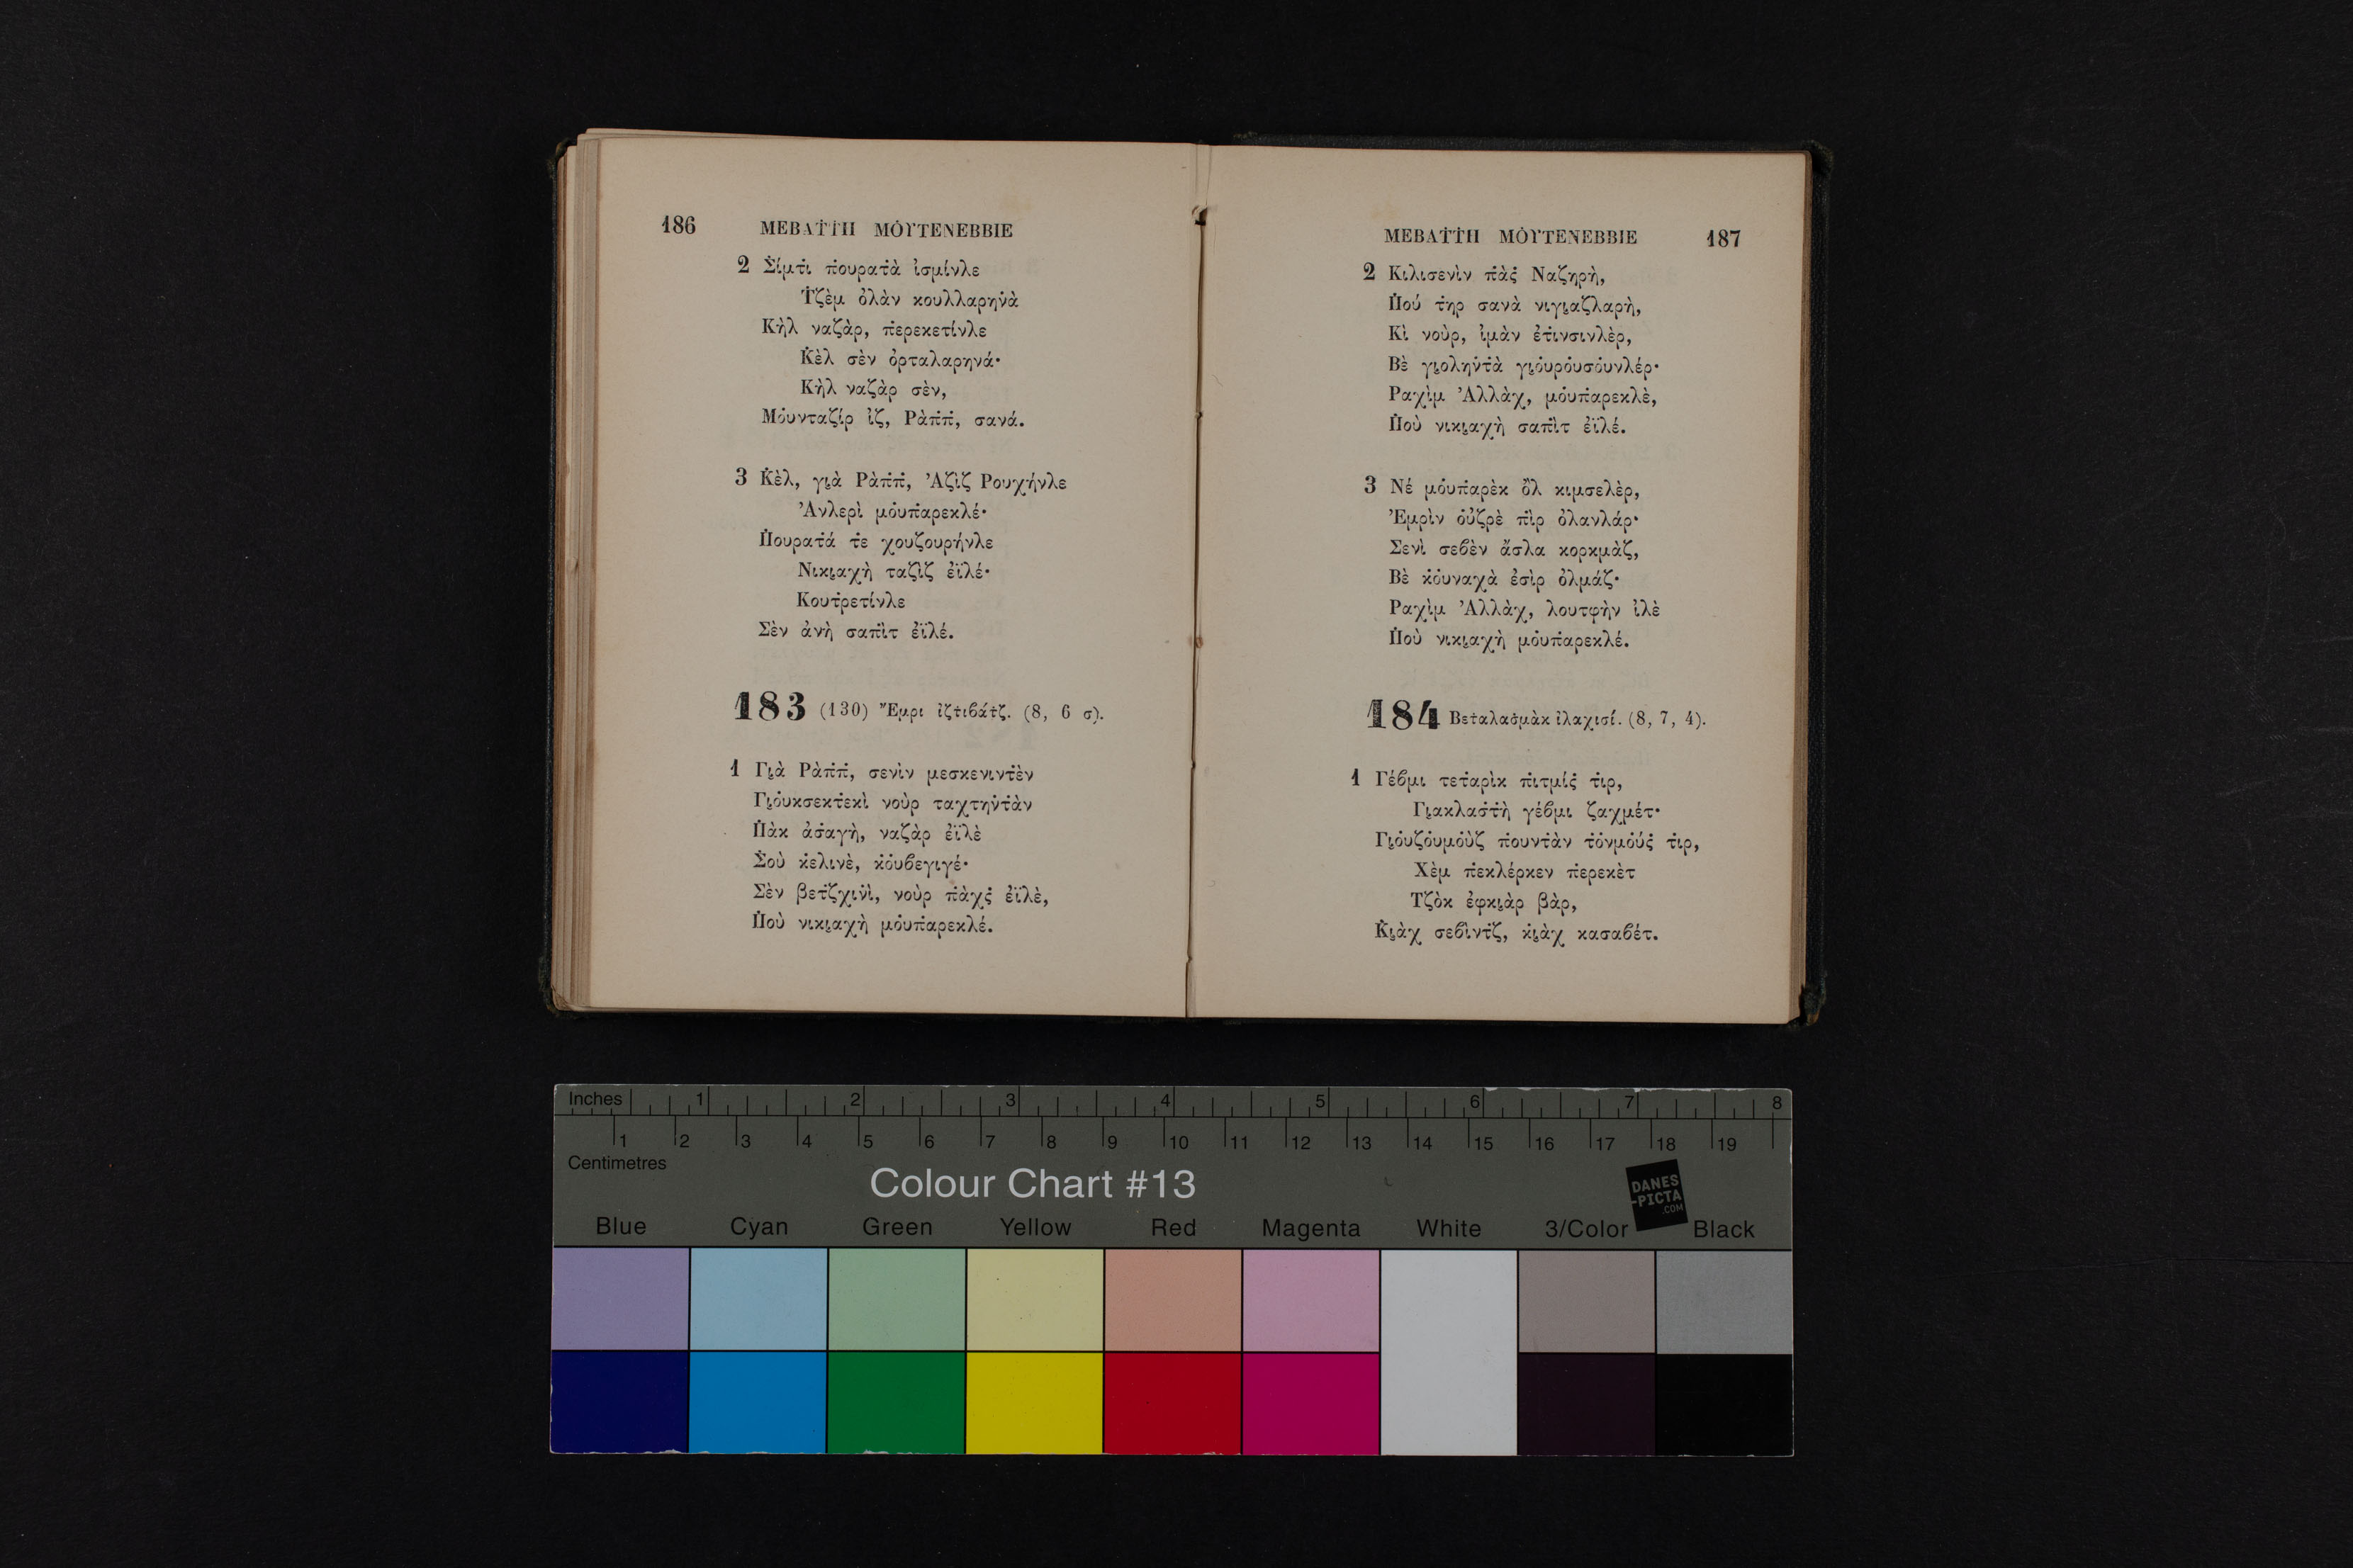 186 ΜΕΒΑṪṪΗ ΜΟ̇ΥΤΕΝΕΒΒΙΕ
2 Σ̇ίμτ̇ι π̇ουρατ̇ὰ ἰσμίνλε
Τ̇ζὲμ ὀλὰν κουλλαρην̇ὰ
Κὴλ ναζὰρ, π̇ερεκετίνλε
Κ̇ὲλ σὲν ὀρταλαρηνά·
Κὴλ ναζὰρ σὲν,
Μο̇υνταζίρ ἰζ, Ρὰπ̇π̇, σανά.
3 Κ̇ὲλ, γι̭ὰ Ρὰπ̇π̇, Ἀζὶζ Ρουχήνλε
Ἀνλερὶ μο̇υπ̇αρεκλέ·
Π̇ουρατ̇ά τ̇ε χουζουρήνλε
Νικι̭αχὴ ταζὶζ ἐϊλέ·
Κουτ̇ρετίνλε
Σὲν ἀνὴ σαπ̇ὶτ ἐϊλέ.
183 (130) Ἔμρι ἰζτ̇ιβάτζ. (8, 6 σ).
1 Γι̭ὰ Ρὰπ̇π̇, σενὶν μεσκενιντ̇ὲν
Γι̭ο̇υκσεκτ̇εκὶ νοὺρ ταχτην̇τ̇ὰν
Π̇ὰκ ἀσ̇αγὴ, ναζὰρ ἐϊλὲ
Σ̇οὺ κ̇ελινὲ, κ̇ο̇υβεγιγέ·
Σὲν βετ̇ζχιν̇ὶ, νοὺρ π̇ὰχς̇ ἐϊλὲ,
Π̇οὺ νικι̭αχὴ μο̇υπ̇αρεκλέ.
ΜΕΒΑṪṪΗ ΜΟ̇ΥΤΕΝΕΒΒΙΕ 187
2 Κιλισενὶν π̇ὰς̇ Ναζηρὴ,
Π̇ού τ̇ηρ σανὰ νιγι̭αζλαρὴ,
Κὶ νοὺρ, ἰμὰν ἐτ̇ινσινλὲρ,
Βὲ γι̭οληντ̇ὰ γι̭ο̇υρο̇υσο̇υνλέρ·
Ραχὶμ Ἀλλὰχ, μο̇υπ̇αρεκλὲ,
Π̇οὺ νικι̭αχὴ σαπ̇ὶτ ἐϊλέ.
3 Νέ μο̇υπ̇αρὲκ ὂλ κιμσελὲρ,
Ἐμρὶν ο̇ὐζρὲ π̇ὶρ ὀλανλάρ·
Σενὶ σεβὲν ἄσλα κορκμὰζ,
Βὲ κ̇ο̇υναχὰ ἐσὶρ ὀλμάζ·
Ραχὶμ Ἀλλὰχ, λουτφὴν ἰλὲ
Π̇οὺ νικι̭αχὴ μο̇υπ̇αρεκλέ.
184 Βετ̇αλασ̇μὰκ ἰλαχισί. (8, 7, 4).
1 Γέβμι τετ̇αρὶκ π̇ιτμίς̇ τ̇ιρ,
Γι̭ακλασ̇τ̇ὴ γέβμι ζαχμέτ·
Γι̭ο̇υζο̇υμο̇ὺζ π̇ουντ̇ὰν τ̇ο̇νμο̇ύς̇ τ̇ιρ,
Χὲμ π̇εκλέρκεν π̇ερεκὲτ
Τζὸκ ἐφκι̭ὰρ βὰρ,
Κ̇ι̭ὰχ σεβὶντ̇ζ, κ̇ι̭ὰχ κασαβέτ.
Inches 1 2 3 4 5 6 7 8
1 2 3 4 5 6 7 8 9 10 11 12 13 14 15 16 17 18 19
Centimetres
Colour Chart #13
DANES
-PICTA
.COM
Blue Cyan Green Yellow Red Magenta White 3/Color Black